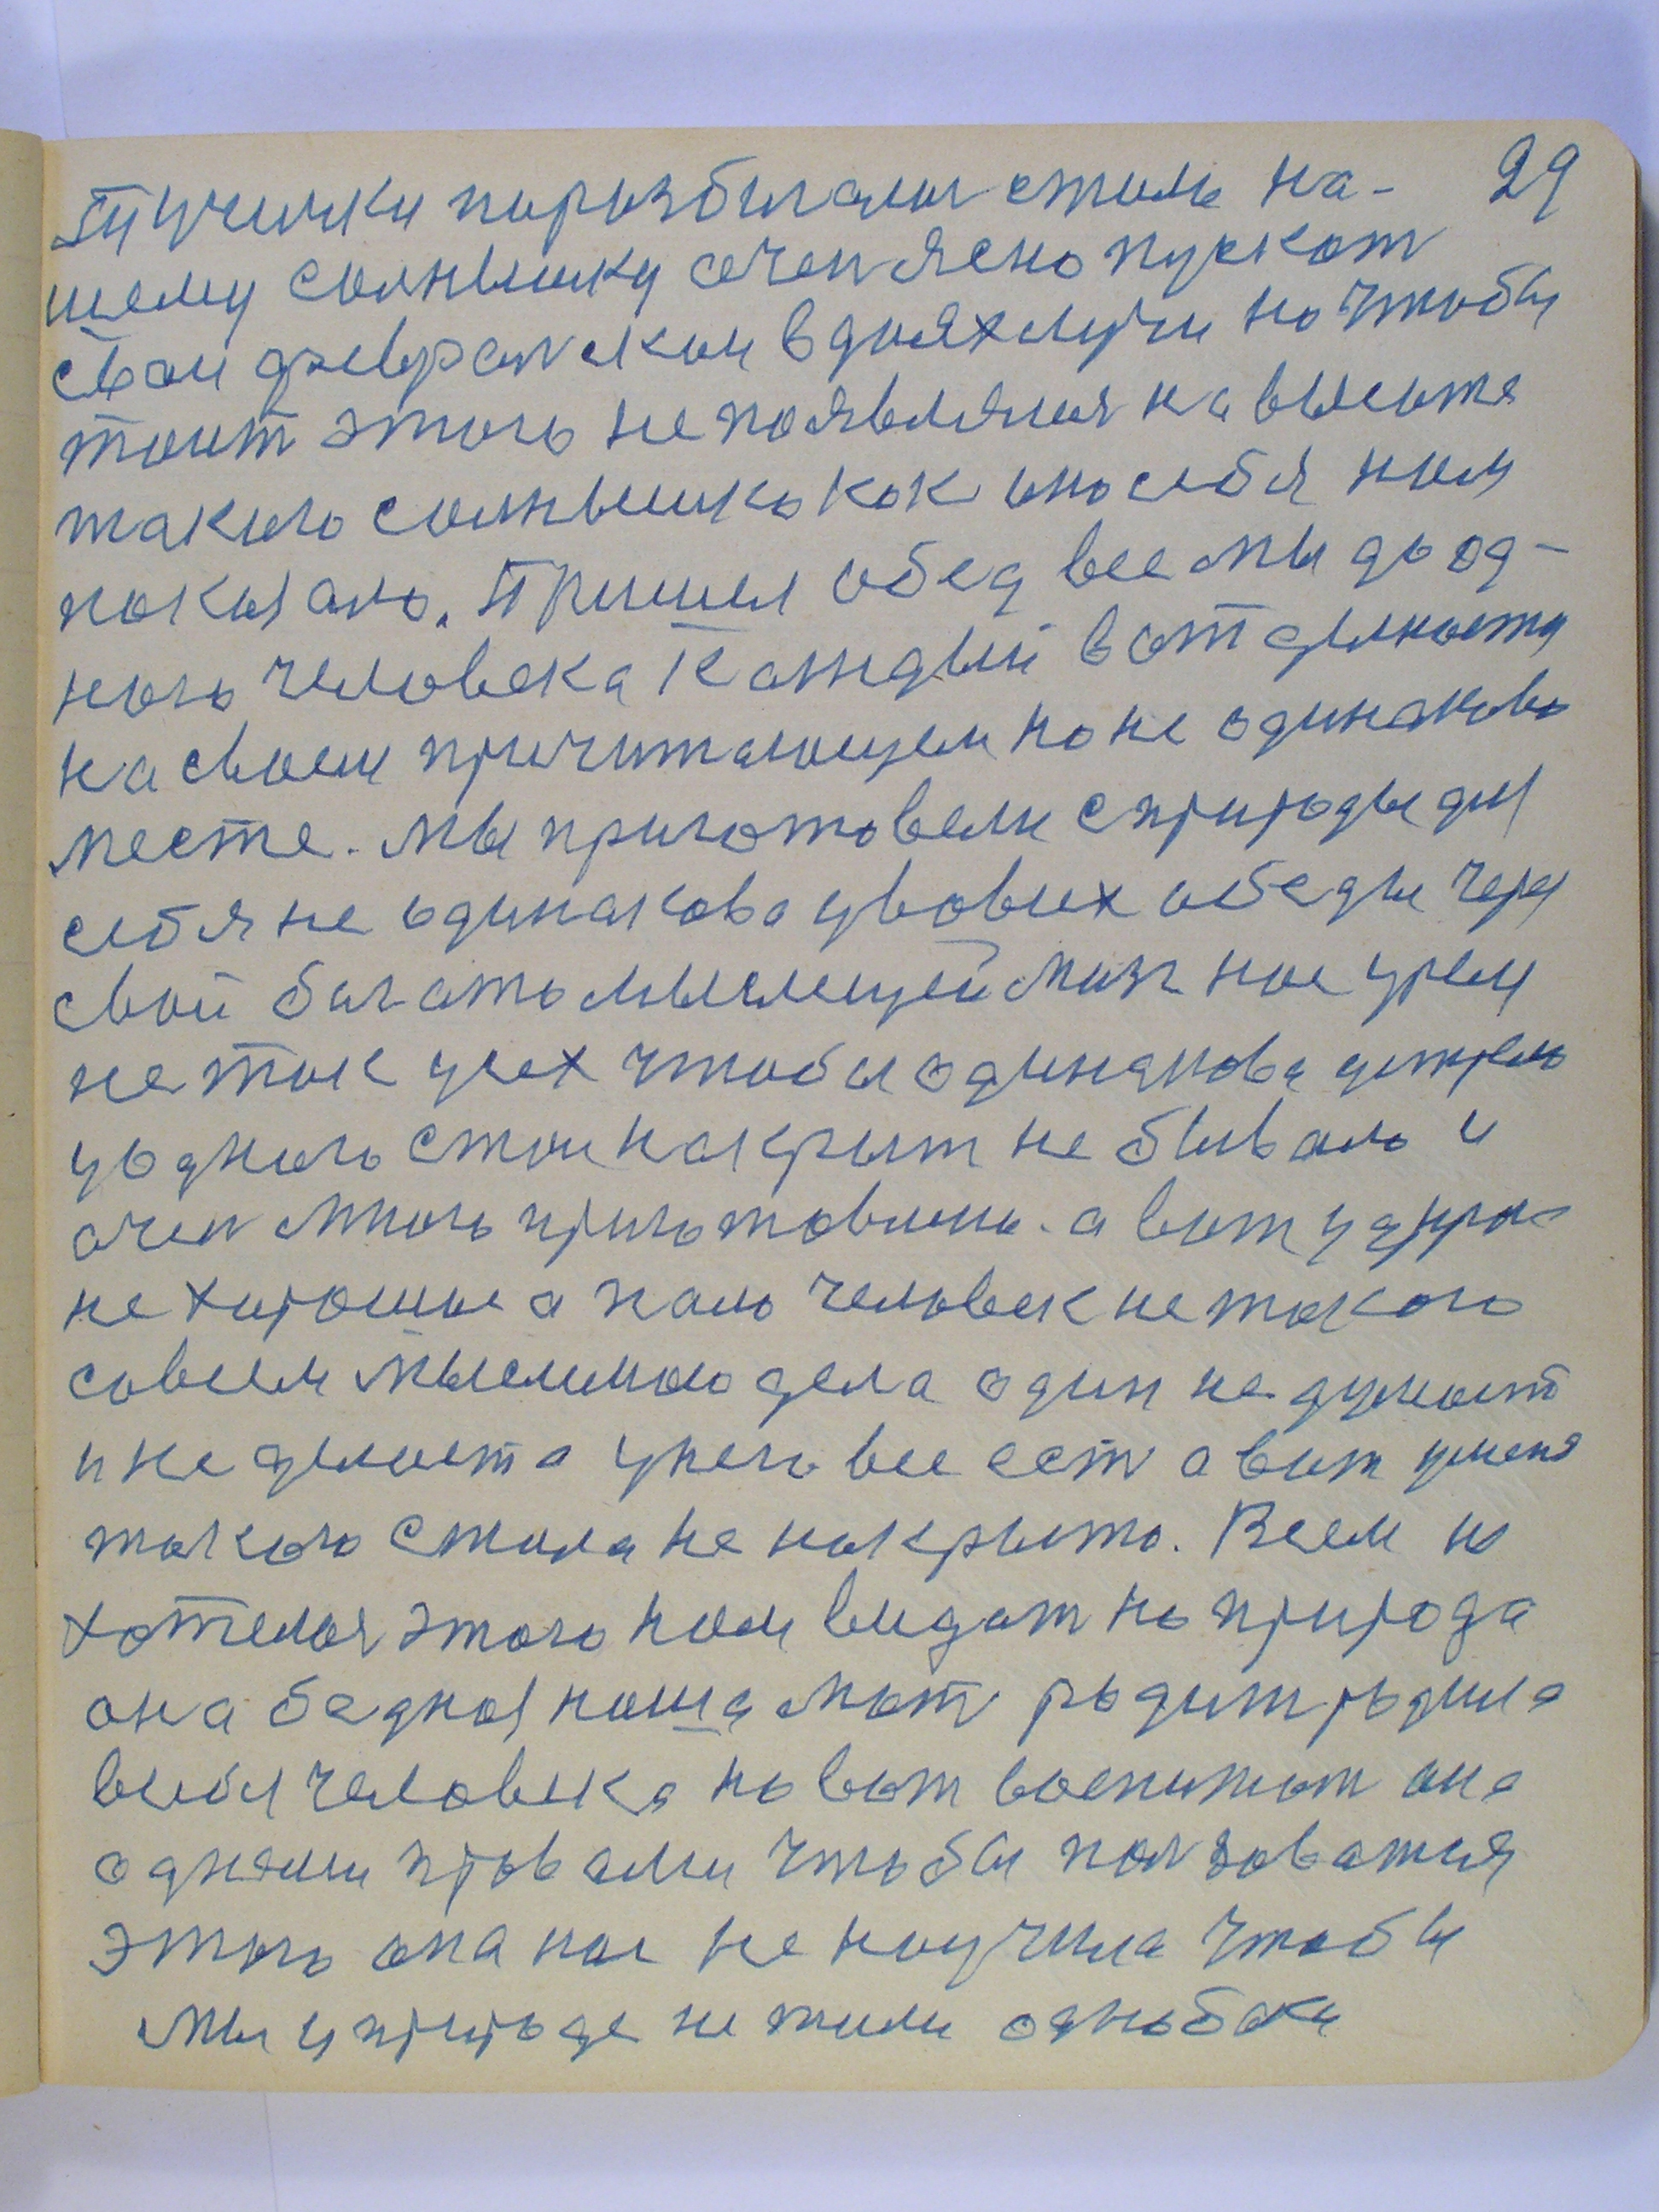 Тучички поразбигалис стало на- 29
шему солнышку очен ясно пускат
свои февралские в днях лучи но чтобы
тоит этого не появлялися на высоте
такого солнышко как оно себя нам
показало. Пришел обед все мы до од-
ного человека каждый в отделности
на своем причитающем но не одинаково
месте. Мы приготовели с природы для
себя не одинакова у во всех обеды через
свой багато мыслещей мозг нас усем
не так усех чтобы одинакова
у одного стол накрыт не бывало и
очен много приготовлено. а вот у дру-
не хорошие а нало человек не такого
совсем мыслимого дела один не думает
и не делает а у него все ест а вот у меня
такого стола не накрыто. Всем
хотелося этого нам видат но природа
она бедная наша мат родит родила
в себя человека но вот воспитат она
одними правами чтобы ползоватися
этого она нас не научила чтобы
мы у природе не жили однобока